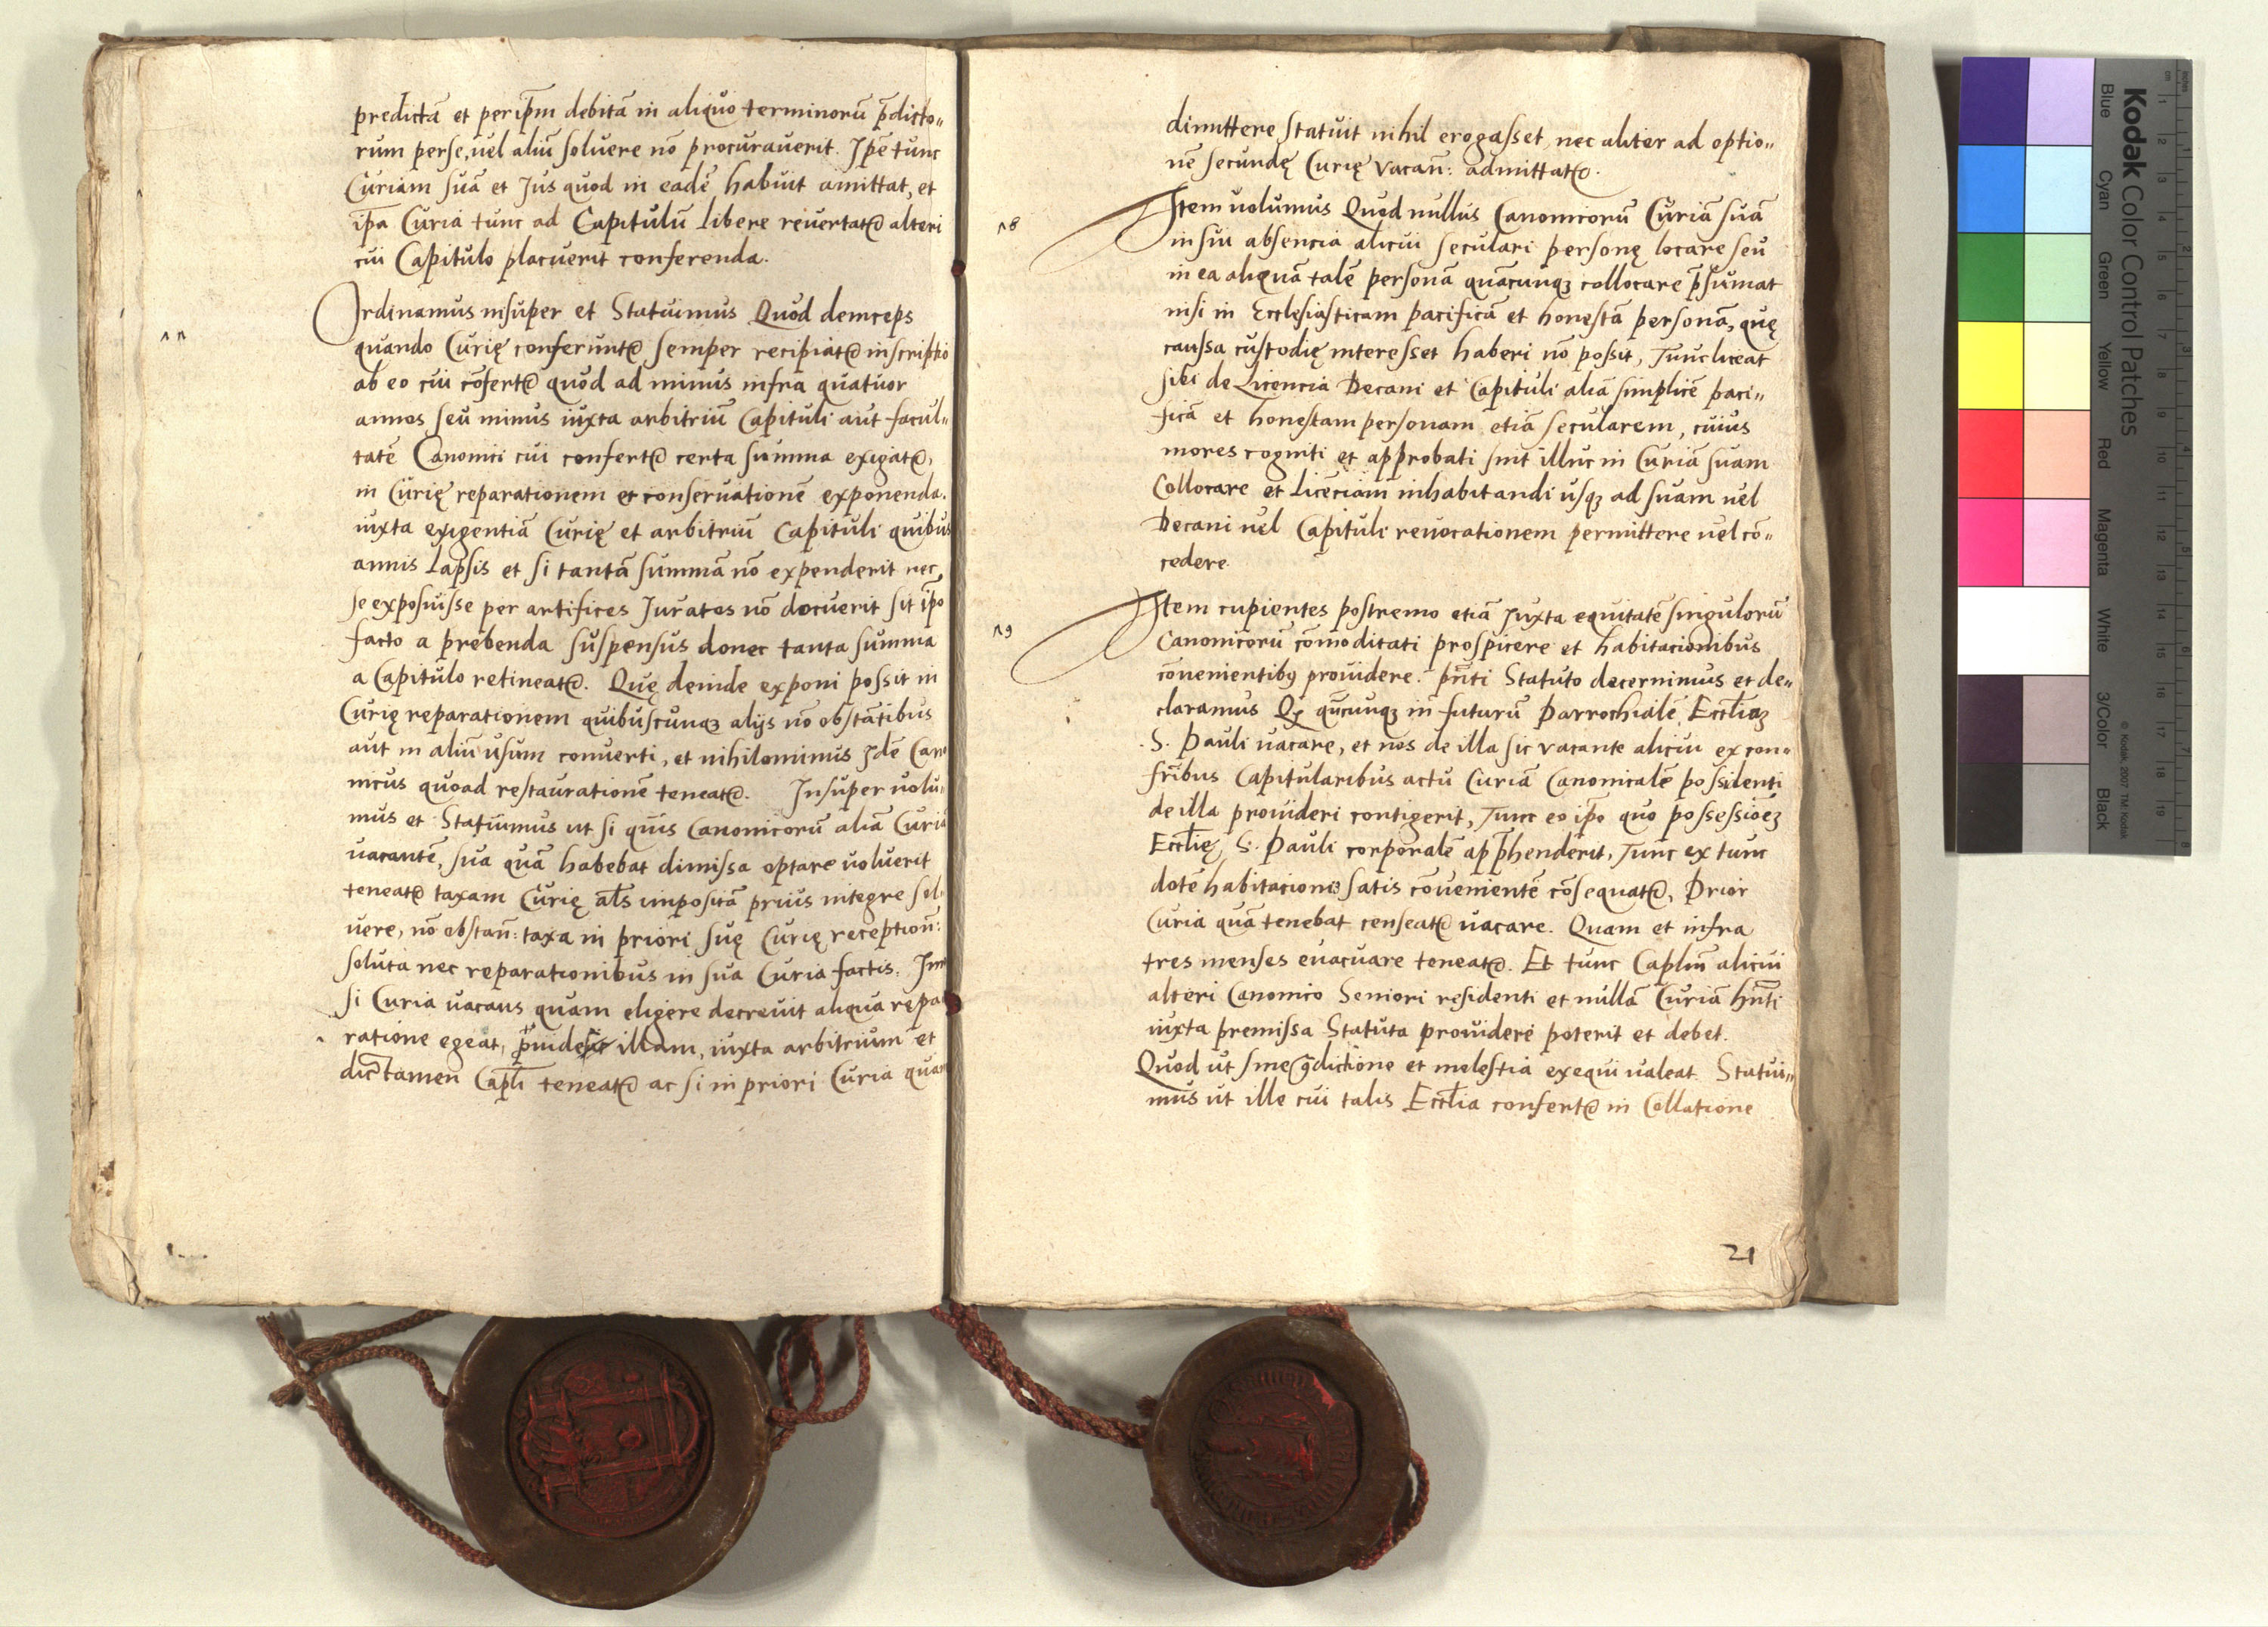 predictā et per ip̄m debitā in aliquo terminorū p̄dicto„
rum per se, uel aliū soluere nō procurauerit. Ip̄e tunc
Curiam suā et Jus quod in eadē habuit amittat, et
ip̄a Curia tunc ad Capitulū libere reuertatꝛ alteri
cui Capitulo placuerit conferenda.
17
Ordinamus insuper et Statuimus Quod deinceps
quando Curię conferuntꝛ semper recipiatꝛ inscriptio
ab eo cui cōfertꝛ quod ad minus infra quatuor
annos seu minus iuxta arbitriū Capituli aut facul„
tatē Canonici cui confertꝛ certa summa exigatꝛ,
in Curię reparationem et conseruationē exponenda.
iuxta exigentiā Curię et arbitriū Capituli quibus
annis lapsis et si tantā summā nō expenderit nec
se exposuisse per artifices Juratos nō docuerit sit ip̄o
facto a prebenda suspensus donec tanta summa
a Capitulo retineatꝛ. Quę deinde exponi possit in
Curię reparationem quibuscunqꝫ alijs nō obstātibus
aut in aliū usum conuerti, et nihilominus Jdē Cano
nicus quoad restaurationē teneatꝛ. Insuper uolu„
mus et Statuimus ut si quis Canonicorū aliā Curiā
uacantē, sua quā habebat dimissa optare uoluerit
teneatꝛ taxam Curię al̄s impositā prius integre sol„
uere, nō obstan̄: taxa in priori suę Curię reception̄:
soluta nec reparationibus in sua Curia factis. Imo
si Curia uacans quam eligere decreuit aliqua repa
ratione egeat, illam, iuxta arbitrium et
dictamen Capl̄i teneatꝛ ac si in priori Curia quam
dimittere statuit nihil erogasset, nec aliter ad optio„
nē secundę Curię vacan̄: admittatꝛ.
18
Item uolumus Quod nullus Canonicorū Curiā suā
in sui absencia alicui seculari personę locare seu
in ea aliquā talē personā quācunqꝫ collocare p̄sumat
nisi in Ecclesiasticam pacificā et honestā personā, quę
caussa custodię interesset haberi nō possit, Tunc liceat
sibi de Licencia Decani et Capituli aliā simplicē paci„
ficā et honestam personam etiā secularem, cuius
mores cogniti et approbati sint illuc in Curiā suam
Collocare et licēciam inhabitandi usqꝫ ad suam uel
Decani uel Capituli reuocationem permittere uel cō„
cedere
19
Item cupientes postremo etiā Juxta equitatē singulorū
Canonicorū cōmoditati prospicere et habitacionibus
cōuenientibꝫ prouidere. pn̄ti Statuto decernimus et de„
claramus Qꝫ qn̄cunqꝫ in futurū Parrochialē Eccl̄iaꝫ
S. Pauli uacare, et nos de illa sic vacante alicui ex con„
fr̄ibus Capitularibus actu Curiā Canonicalē possidenti
de illa prouideri contigerit, Tunc eo ip̄o quo possessioēꝫ
Eccl̄ię S. Pauli corporalē app̄henderit, Tunc ex tunc
dotē habitacionis satis cōuenientē cōsequatꝛ, Prior
Curia quā tenebat censeatꝛ uacare. Quam et infra
tres menses euacuare teneatꝛ. Et tunc Capl̄m alicui
alteri Canonico Seniori residenti et nullā Curiā hn̄ti
iuxta premissa Statuta prouidere poterit et debet.
Quod ut sine ꝯdictione et molestia exequi ualeat Statui„
mus ut ille cui talis Eccl̄ia confertꝛ in Collatione
21
Kodak Color Control Patches
Blue Cyan Green Yellow Red Magenta White 3/Color Black
© Kodak, 2007 TM: Kodak
cm 1 2 3 4 5 6 7 8 9 10 11 12 13 14 15 16 17 18 19
1 2 3 4 5 6 7 8